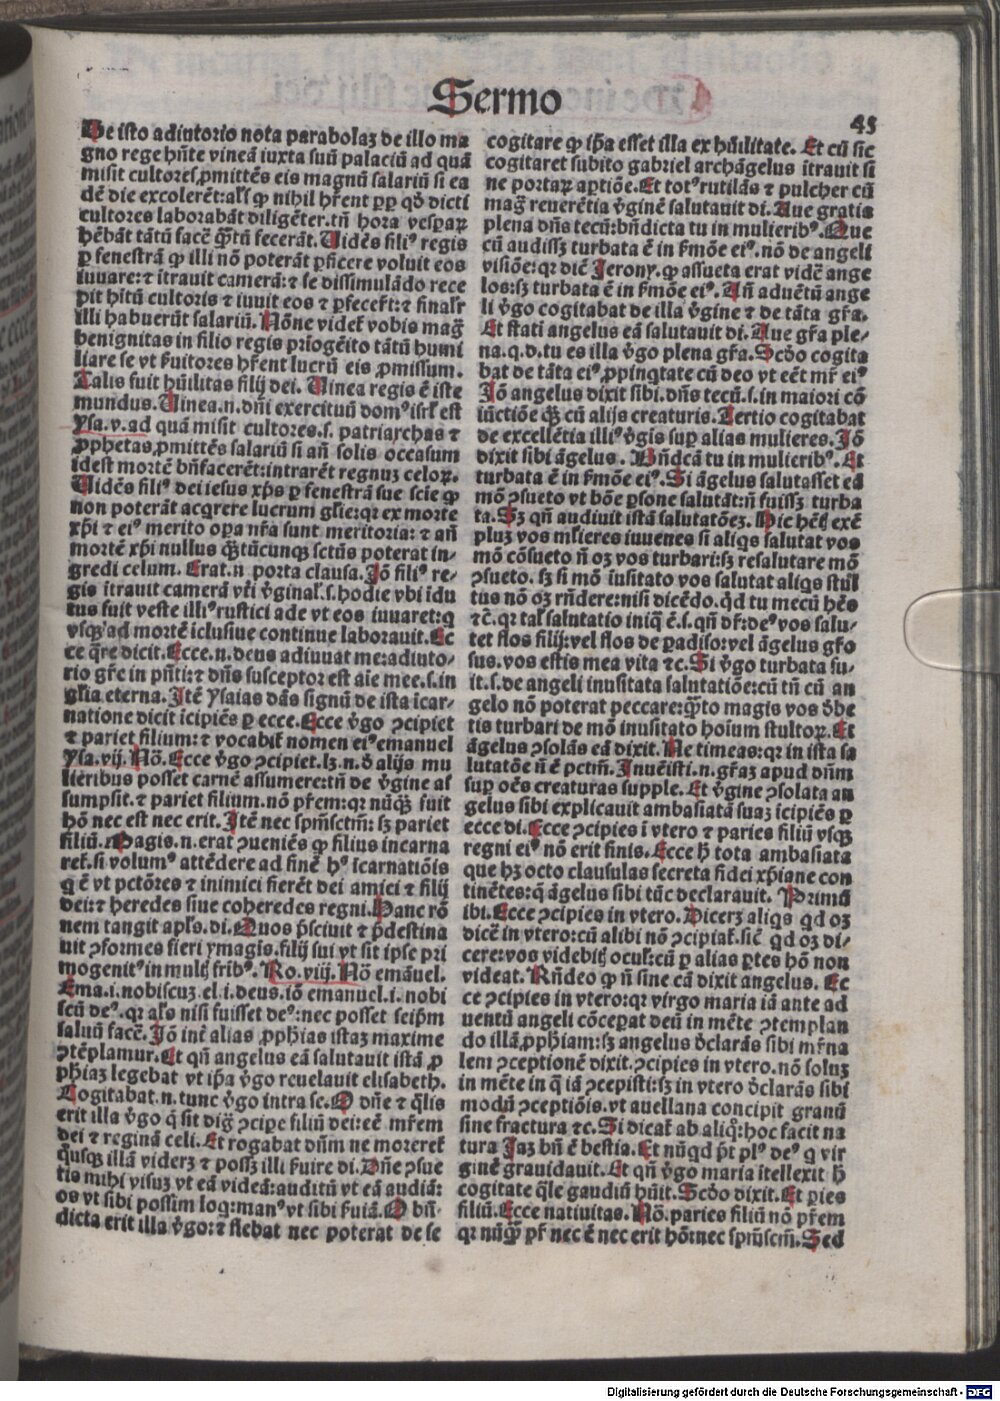 Sermo
45
De isto adiutorio nota parabolaȝ de illo ma
gno rege hn̄te vineā iuxta suū palaciū ad quā
misit cultores,ꝓmittēs eis magnū salariū si ea
dē die excolerēt:als̄ ꝙ nihil hr̄ent ꝓp qd̄ dicti
cultores laborabāt diligēter.tn̄ hora vesꝑaꝝ
hēbāt tātū facē q̄tū fecerāt.Uidēs fili⁹ regis
ꝑ fenestrā ꝙ illi nō poterāt ꝑficere voluit eos
iuuare:⁊ ītrauit camerā:⁊ se dissimulādo rece
pit hītū cultoris ⁊ iuuit eos ⁊ ꝑfecer̄t:⁊ finalr̄
illi habuerūt salariū.Nōne videt̄ vobis maḡ
benignitas in filio regis prīogēito tātū humi
liare se vt ẜuitores hr̄ent lucrū eis ꝓmissum.
Talis fuit hūilitas filij dei.Uinea regis ē iste
mundus.Uinea.n.dn̄i exercituū dom⁹ isrl̄ est
ysa.v.ad quā misit cultores.s.patriarchas ⁊
ꝓphetas,ꝓmittēs salariū si an̄ solis occasum
idest mortē bn̄facerēt:intrarēt regnuȝ celoꝝ.
Uidēs fili⁹ dei iesus xp̄s ꝑ fenestrā sue scīe ꝙ
non poterāt acq̄rere lucrum gl̄ie:qꝛ ex morte
xp̄i ⁊ ei⁹ merito oꝑa nr̄a sunt meritoria:⁊ an̄
mortē xp̄i nullus q̄tūcunqȝ sctūs poterat in-
gredi celum.Erat.n̄ porta clausa.Jō fili⁹ re-
gis ītrauit camerā vt̄i v̄ginal̄.s.hodie vbi īdu
tus fuit veste illi⁹ rustici ade vt eos iuuaret:⁊
vsqȝ ad mortē īclusiue continue laborauit.Ec
ce q̄re dicit.Ecce.n.deus adiuuat me:adiuto-
rio gr̄e in pn̄ti:⁊ dn̄s susceptor est aīe mee.s.in
gl̄ia eterna.Jtē ysaias dās signū de ista īcar-
natione dicit īcipiēs ꝑ ecce.Ecce v̄go ↄcipiet
⁊ pariet filium:⁊ vocabit̄ nomen ei⁹ emanuel
ysa.vij.Nō.Ecce v̄go ↄcipiet.lȝ.n.d̄ alijs mu
lieribus posset carnē assumere:tn̄ de v̄gine al̄
sumpsit.⁊ pariet filium.nō pr̄em:qꝛ nūq̄ȝ fuit
hō nec est nec erit.Jtē nec spm̄sctm̄:sȝ pariet
filiū.Magis.n.erat ↄueniēs ꝙ filius incarna
ret̄.si volum⁹ attēdere ad finē h⁹ īcarnatiōis
q̄ ē vt pctōres ⁊ inimici fierēt dei amici ⁊ filij
dei:⁊ heredes siue coheredes regni.Hanc rō
nem tangit apl̄s.di.Quos p̄sciuit ⁊ p̄destina
uit ↄformes fieri ymagīs.filij sui vt sit ipse pri
mogenit⁹ in mul̄ frib⁹.Ro.viij.Nō emāuel.
Ema.i.nobiscuȝ.el.i.deus.iō emanuel.i.nobi
scū de⁹.qꝛ al̄s nisi fuisset de⁹:nec posset seip̄m
saluū facē.Jō int̄ alias ꝓphīas istaȝ maxime
ↄtēplamur.Et qn̄ angelus eā salutauit istā ꝓ
phīaȝ legebat vt ip̄a v̄go reuelauit elisabeth.
Cogitabat.n.tunc v̄go intra se.O dn̄e ⁊ q̄lis
erit illa v̄go q̄ sit diḡ ↄcipe filiū dei:eē mr̄em
dei ⁊ reginā celi.Et rogabat dūm ne moreret̄
q̄usqȝ illā viderȝ ⁊ possȝ illi ẜuire di.Dn̄e ↄsue
tis mihi visuȝ vt eā videā:auditū vt eā audiā:
os vt sibi possim loq:man⁹ vt sibi ẜuiā.O bn̄-
dicta erit illa v̄go:⁊ flebat nec poterat de se
cogitare ꝙ ip̄a esset illa ex hūilitate.Et cū sic
cogitaret subito gabriel archāgelus ītrauit si
ne portaꝝ aꝑtiōe.Et tot⁹ rutilās ⁊ pulcher cū
maḡ reuerētia v̄ginē salutauit di.Aue gratia
plena dn̄s tecū:bn̄dicta tu in mulierib⁹.Que
cū audissȝ turbata ē in ẜmōe ei⁹.nō de angeli
visiōe:qꝛ dic̄ Jerony.ꝙ assueta erat vidē ange
los:sȝ turbata ē in ẜmōe ei⁹.An̄ aduētū ange
li v̄go cogitabat de illa v̄gine ⁊ de tāta gr̄a.
Et stati angelus eā salutauit di.Aue gr̄a ple-
na.q.d.tu es illa v̄go plena gr̄a.Scd̄o cogita
bat de tāta ei⁹ ꝓpinq̄tate cū deo vt eēt mr̄ ei⁹
Jō angelus dixit sibi.dn̄s tecū.s.in maiori cō
iūctiōe q̄ȝ cū alijs creaturis.Tertio cogitabat
de excellētia illi⁹ v̄gis suꝑ alias mulieres.Jō
dixit sibi āgelus. Bn̄dcā tu in mulierib⁹.Et
turbata ē in ẜmōe ei⁹.Si āgelus salutasset eā
mō ↄsueto vt bōe ꝑsone salutāt:n̄ fuissȝ turba
ta.Sȝ qn̄ audiuit istā salutatōeȝ.Hic hēt̄ exē
pluȝ vos mlieres iuuenes si aliqs salutat vos
mō cōsueto n̄ oȝ vos turbari:sȝ resalutare mō
ↄsueto. sȝ si mō īusitato vos salutat aliqs stul
tus nō oȝ rn̄dere:nisi dicēdo.qd̄ tu mecū hēs
⁊c̄.qꝛ tal̄ salutatio iniq̄ ē.s.qn̄ dr̄:de⁹ vos salu-
tet flos filij:vel flos de ꝑadiso:vel āgelus gl̄o
sus.vos estis mea vita ⁊c.Si v̄go turbata fu-
it.s.de angeli inusitata salutatiōe:cū tn̄ cū an
gelo nō poterat peccare:q̄to magis vos d̄be
tis turbari de mō inusitato hoīum stultoꝝ.Et
āgelus ↄsolās eā dixit.Ne timeas:qꝛ in ista sa
lutatōe n̄ ē pctm̄.Jnuēisti.n.gr̄aȝ apud dn̄m
suꝑ oēs creaturas supple.Et v̄gine ↄsolata an
gelus sibi explicauit ambasiatā suaȝ īcipiēs ꝑ
ecce di.Ecce ↄcipies ī vtero ⁊ paries filiū vsqȝ
regni ei⁹ nō erit finis.Ecce h̄ tota ambasiata
que hȝ octo clausulas secreta fidei xp̄iane con
tinētes:q̄ āgelus sibi tūc declarauit. Primū
ibi.Ecce ↄcipies in vtero.Dicerȝ aliqs qd oȝ
dicē in vtero:cū alibi nō ↄcipiat̄.sic̄ qd oȝ di-
cere:vos videbit̄ ocul̄:cū ꝑ alias ꝑtes hō non
videat. Rn̄deo ꝙ n̄ sine cā dixit angelus. Ec
ce ↄcipies in vtero:qꝛ virgo maria iā ante ad
uentū angeli cōceꝑat deū in mēte ↄtemplan
do illā ꝓphīam:sȝ angelus d̄clarās sibi mr̄na
lem ↄceptionē dixit.ↄcipies in vtero.nō soluȝ
in mēte in q̄ iā ↄcepisti:sȝ in vtero d̄clarās sibi
modū ↄceptiōis.vt auellana concipit granū
sine fractura ⁊c.Si dicat̄ ab aliq̄:hoc facit na
tura Jaȝ bn̄ ē bestia.Et nūqd p̄t pl⁹ de⁹ q̄ vir
ginē grauidauit.Et qn̄ v̄go maria ītellexit h̄
cogitate q̄le gaudiū hūit.Scd̄o dixit.Et ꝑies
filiū.Ecce natiuitas.Nō.paries filiū nō pr̄em
qꝛ nūq̄ pr̄ nec ē nec erit hō:nec spm̄scm̄.Sed
Digitalisierung gefördert durch die Deutsche Forschungsgemeinschaft - DFG